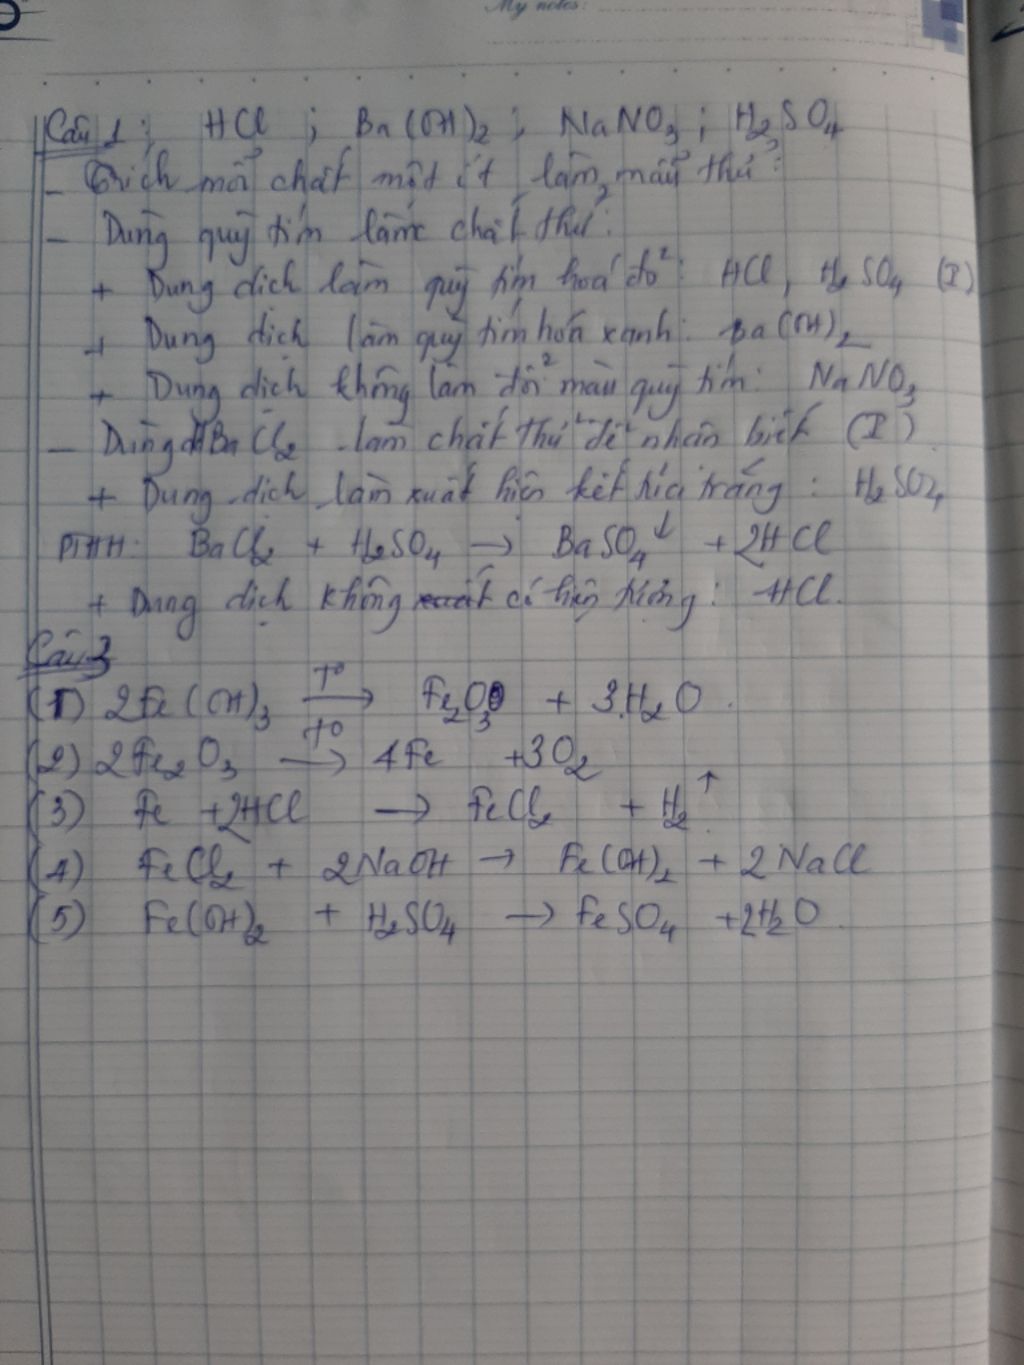 My notes:
Câu 1: HCl ; Ba(OH)2 ; NaNO3 ; H2SO4
- Trích mỗi chất một ít làm mẫu thử:
- Dùng quỳ tím làm chất thử:
+ Dung dịch làm quỳ tím hoá đỏ: HCl, H2SO4 (I)
+ Dung dịch làm quỳ tím hoá xanh: Ba(OH)2
+ Dung dịch không làm đổi màu quỳ tím: NaNO3
- Dùng dd BaCl2 làm chất thử để nhận biết (I)
+ Dung dịch làm xuất hiện kết tủa trắng: H2SO4
PTHH: BaCl2 + H2SO4 → BaSO4↓ + 2HCl
+ Dung dịch không có hiện tượng: HCl.
Câu 3
(1) 2Fe(OH)3 t° → Fe2O3 + 3H2O.
(2) 2Fe2O3 t° → 4Fe + 3O2
(3) Fe + 2HCl → FeCl2 + H2↑
(4) FeCl2 + 2NaOH → Fe(OH)2 + 2NaCl
(5) Fe(OH)2 + H2SO4 → FeSO4 + 2H2O.